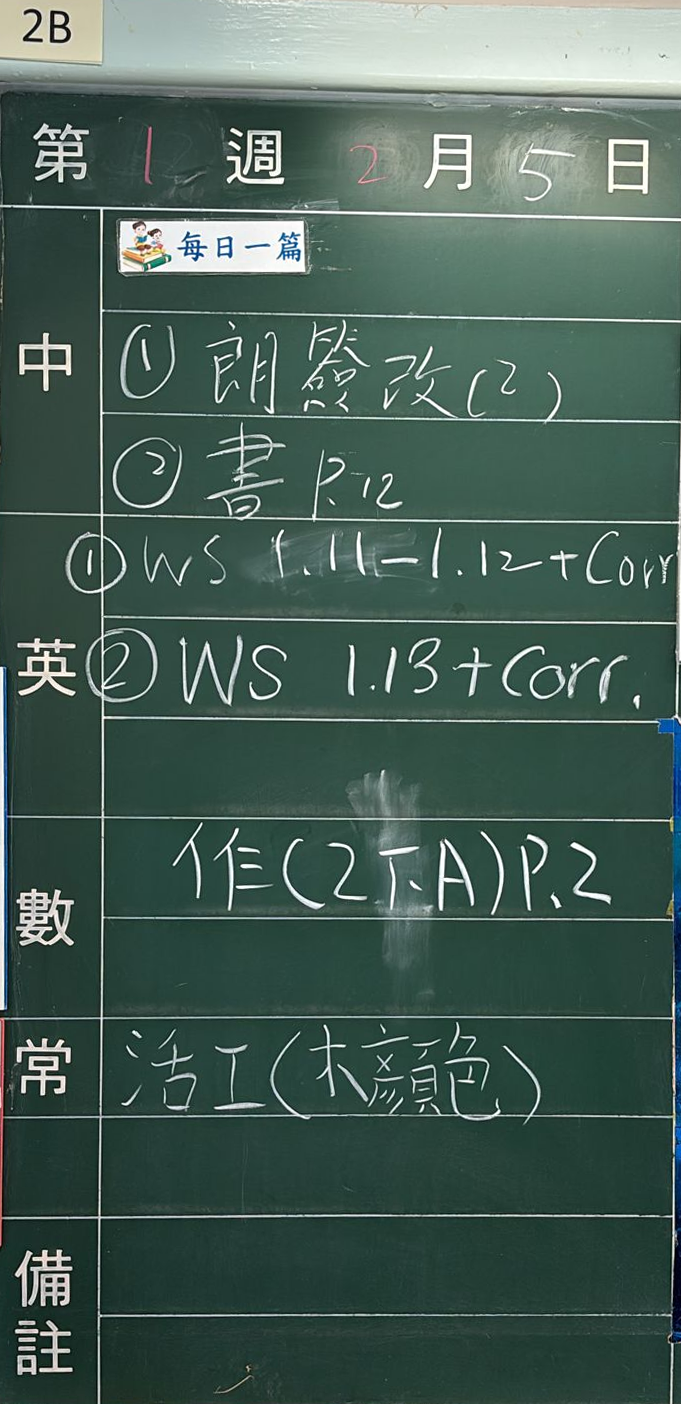 2B
第 1 週 2 月 5 日
每日一篇
中
① 朗簽改(2)
② 書 P.12
英
① WS 1.11-1.12+Corr
② WS 1.13+Corr.
數
作(2下A)P.2
常
活工(木顏色)
備註